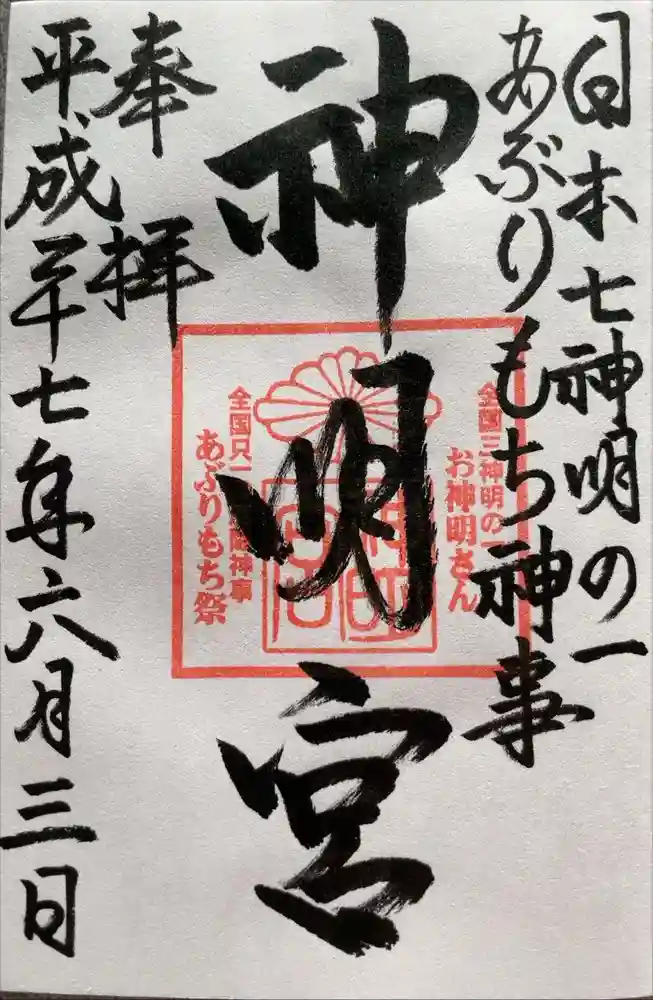 日本七神明の一
あぶりもち神事
神明宮
奉拝
平成二十七年六月三日
全国三神明の一
お神明さん
神明
全国只一
神事
あぶりもち祭